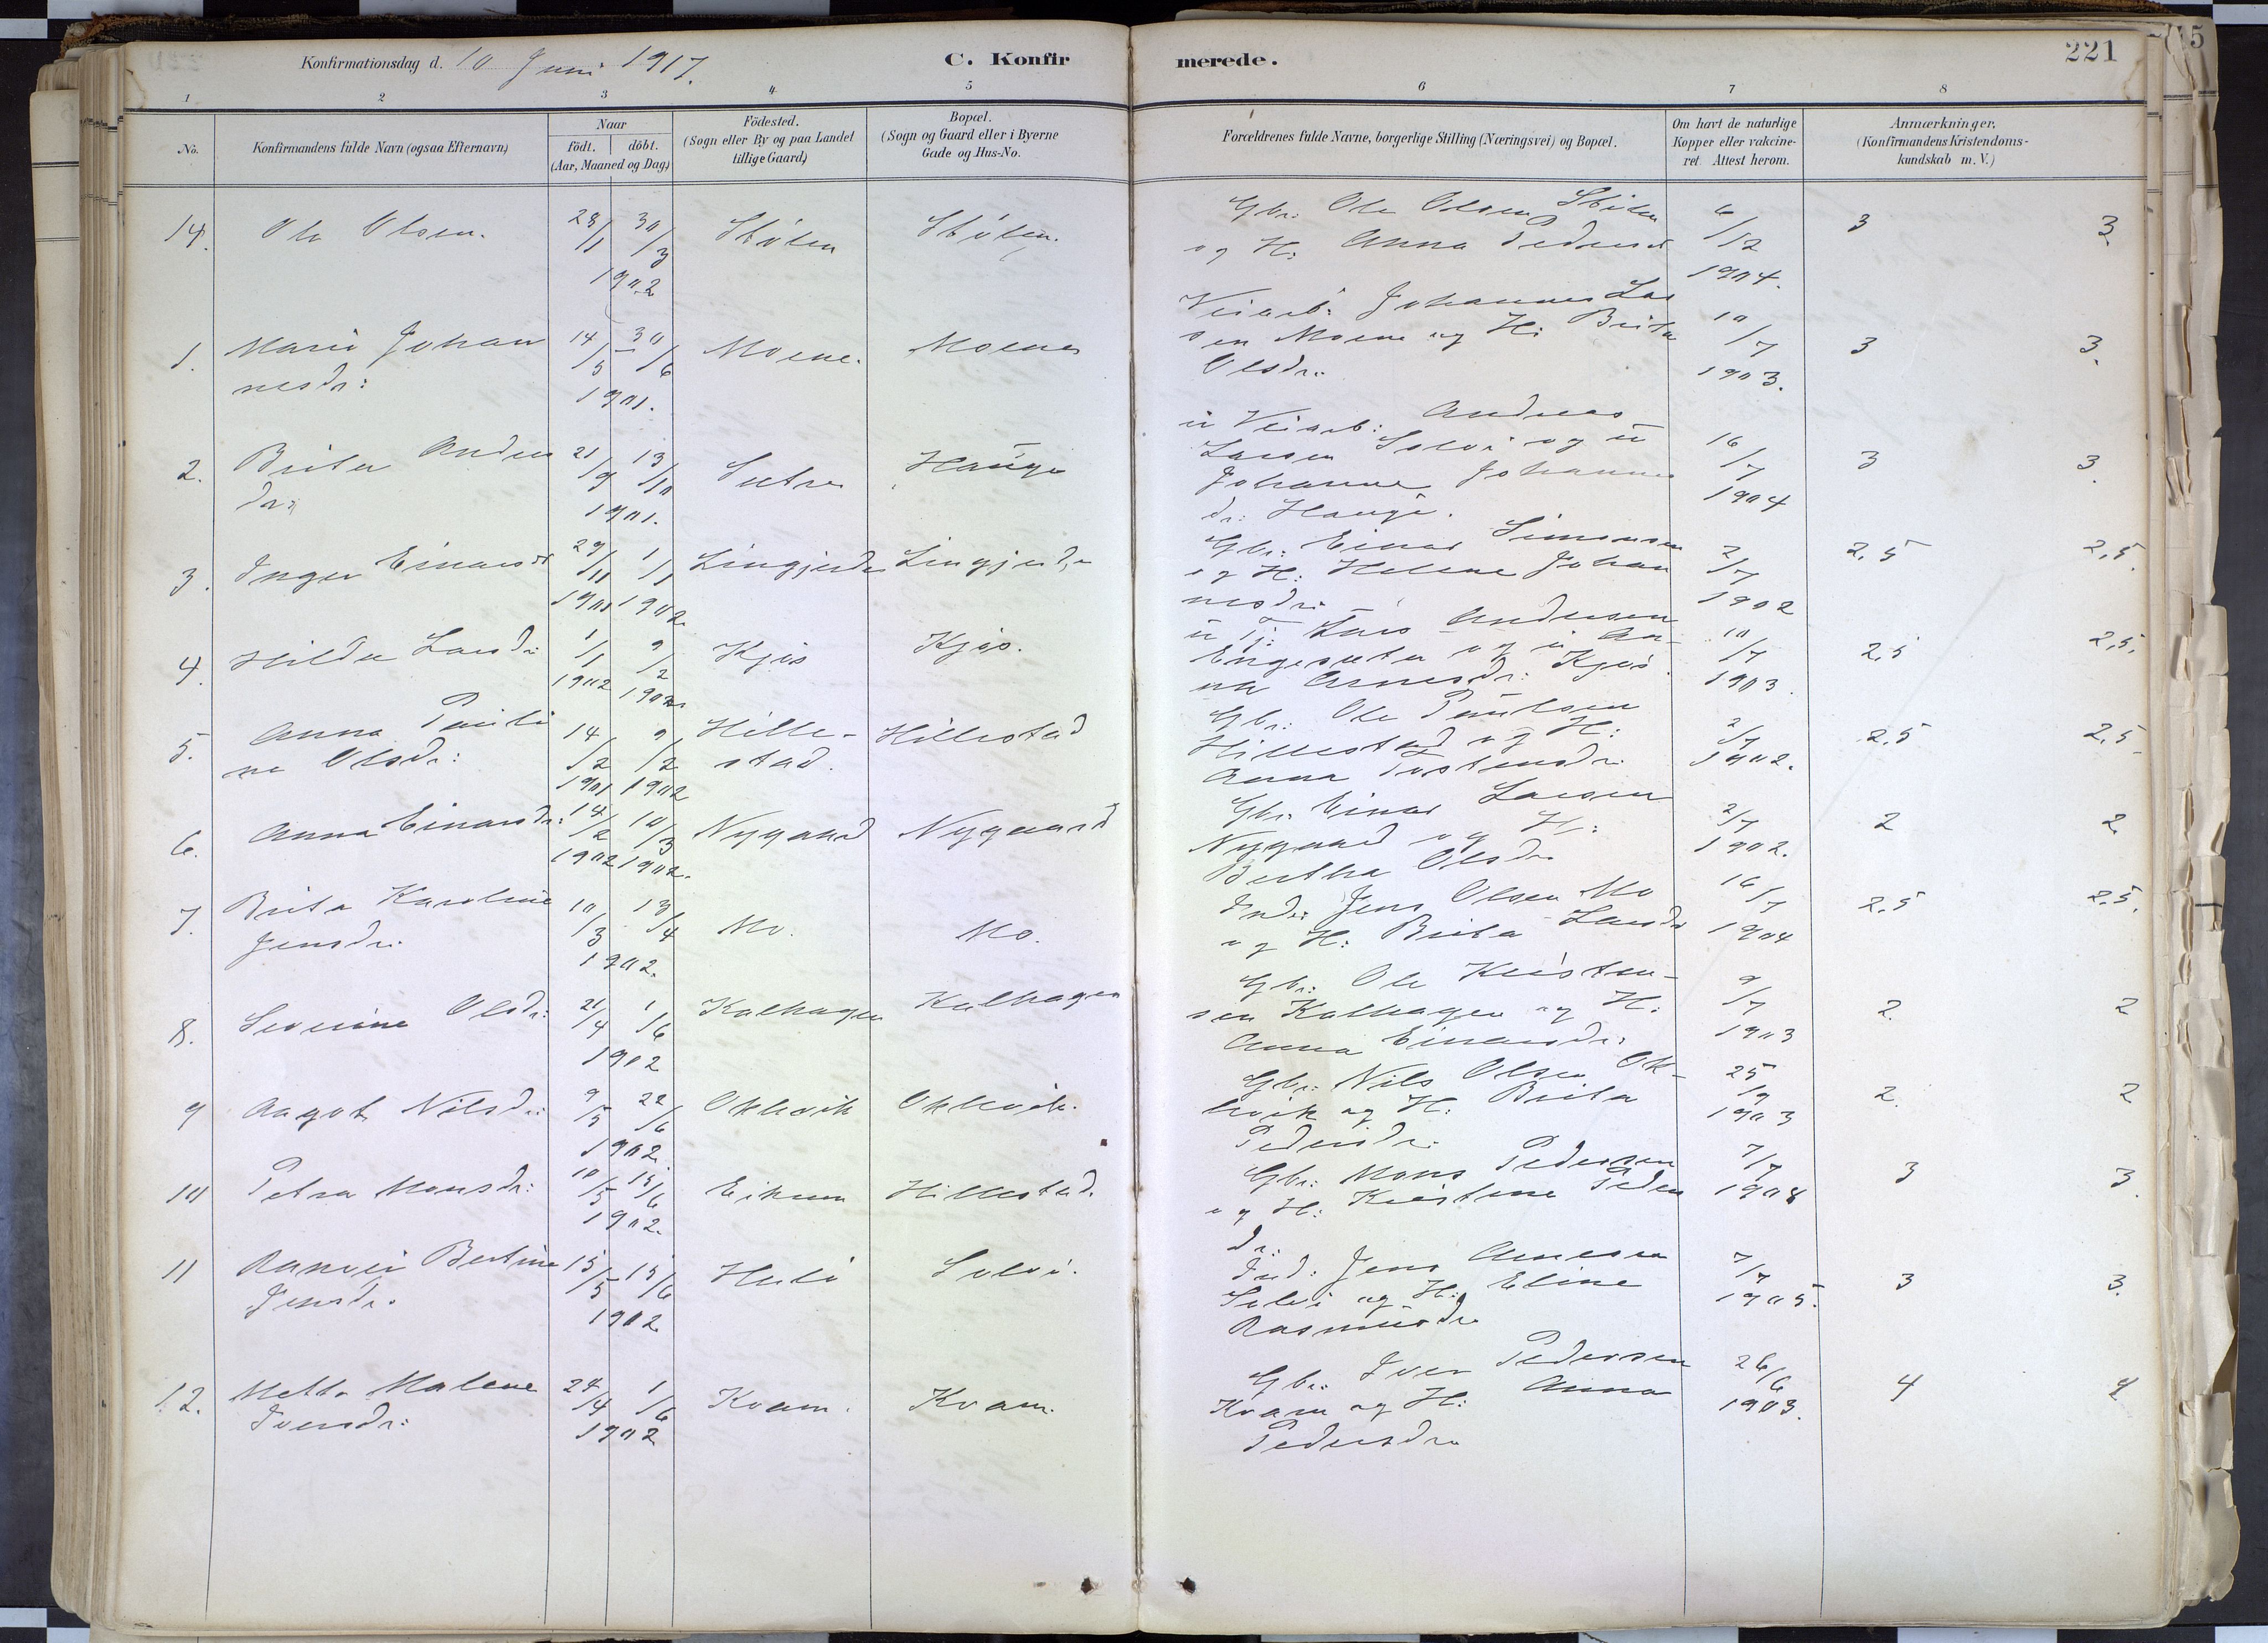 Konfirmationsdag d. 10 Juni 1917. C. Konfirmerede. 221
1 2 3 4 5 6 7 8
No. Konfirmandens fulde Navn (ogsaa Efternavn) Naar födt. döbt. (Aar, Maaned og Dag) Födested. (Sogn eller By og paa Landet tillige Gaard) Bopæl. (Sogn og Gaard eller i Byerne Gade og Hus-No. Forældrenes fulde Navne, borgerlige Stilling (Næringsvei) og Bopæl. Om havt de naturlige Kopper eller vakcineret Attest herom. Anmærkninger, (Konfirmandens Kristendomskundskab m. V.)
14. Ole Olsen. 28/1 30/3 1902 Stölen Stölen. Gbr: Ole Olsen Stölen og H: Anna Pedersd 6/12 1904. 3 3
1. Marie Johannesdr: 14/5 30/6 1901. Moene. Moene Veiarb: Johannes Larsen Moene og H: Brita Olsdr: 10/7 1903. 3 3.
2. Brita Andersdr: 21/9 13/10 1901. Sætre Hauge ü Veiarb: Andreas Larsen Solvi og ü Johanne Johannesdr: Hauge. 16/7 1904 3 3.
3. Inger Einarsd 29/11 1901 1/1 1902 Lingjerde Lingjerde Gbr: Einar Simonsen og H: Helene Johannesdr: 2/7 1902 2,5 2,5.
4. Hilda Larsdr: 1/1 1902 9/2 1902 Kjös Kjös. ü Tj: Lars Andersen Engesæter og ü Anna Arnesdr: Kjös. 10/7 1903. 2,5 2,5.
5. Anna Pauline Olsdr: 14/12 1901 9/2 1902 Hillestad. Hillestad Gbr: Ole Paulsen Hillestad og H: Anna Tostensdr: 2/7 1902. 2,5 2,5.
6. Anna Einarsdr: 14/2 1902 10/3 1902. Nygaard Nygaard Gbr: Einar Larsen Nygaard og H: Bertha Olsdr: 2/7 1902. 2 2
7. Brita Karoline Jensdr: 10/3 13/4 1902. Mo. Mo. Inds: Jens Olsen Mo og H: Brita Larsdr 16/7 1904 2,5 2,5.
8. Severine Olsdr: 21/4 1/6 1902 Kalhagen Kalhagen Gbr: Ole Kristensen Kalhagen og H: Anna Einarsdr: 9/7 1903 2. 2
9 Aagot Nilsdr: 9/5 22/6 1902. Oklevik Oklevik. Gbr: Nils Olsen Oklevik og H: Brita Pedersdr: 25/9 1903 2. 2
10 Petra Monsdr: 10/5 15/6 1902. Eikum Hillestad. Gbr: Mons Pedersen og H: Kristine Pedersdr: 7/7 1908 3 3.
11 Ranvei Bertine Jensdr. 15/5 15/6 1902. Huli Solvi. Ind: Jens Arnesen Solvi og H: Eline Rasmusdr: 7/7 1905. 3 3.
12. Metta Malene Iversdr: 24/4 1/6 1902 Kvam. Kvam. Gbr: Iver Pedersen Kvam og H: Anna Pedersdr: 26/6 1903. 4 4